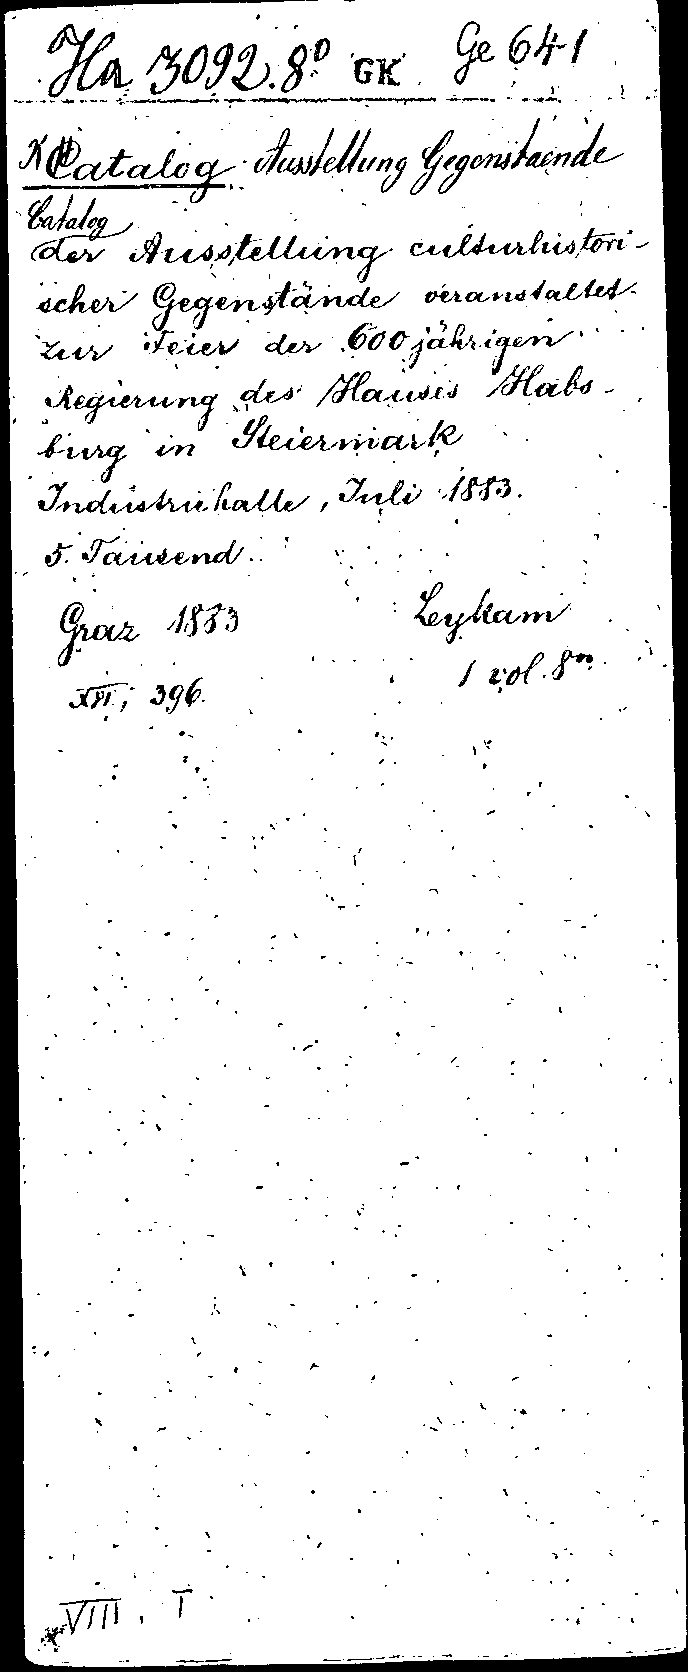 Ha 3092.8° GK Ge 641
Catalog Ausstellung Gegenstaende
Catalog
der Ausstellung culturhistori-
scher Gegenstände veranstaltet
zur Feier der 600 jährigen
Regierung des Hauses Habs-
burg in Steiermark
Industriehalle, Juli 1883.
5. Tausend.
Graz 1883 Leykam
XVI, 396. 1 vol. 8°
VIII, T